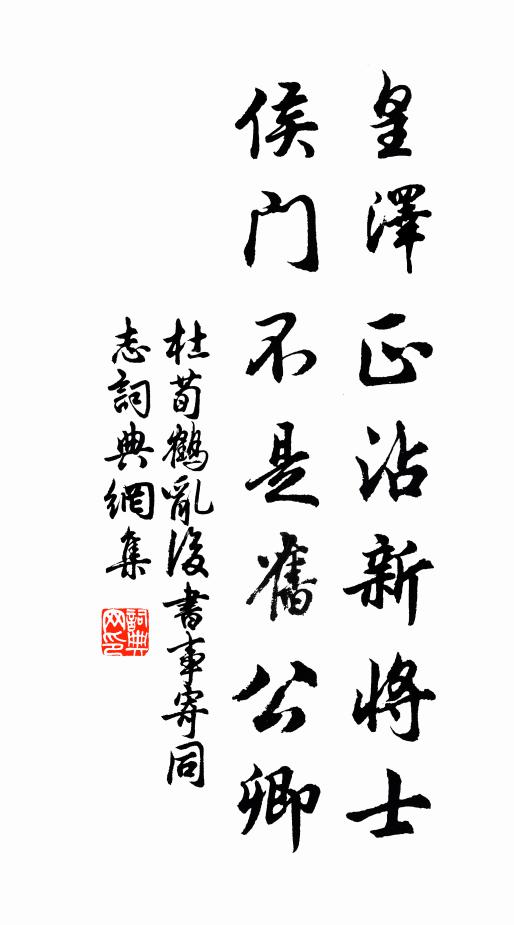 皇澤正沾新將士
侯門不是舊公卿
杜荀鶴亂後書事寄同
志詞典網集
詞典網印